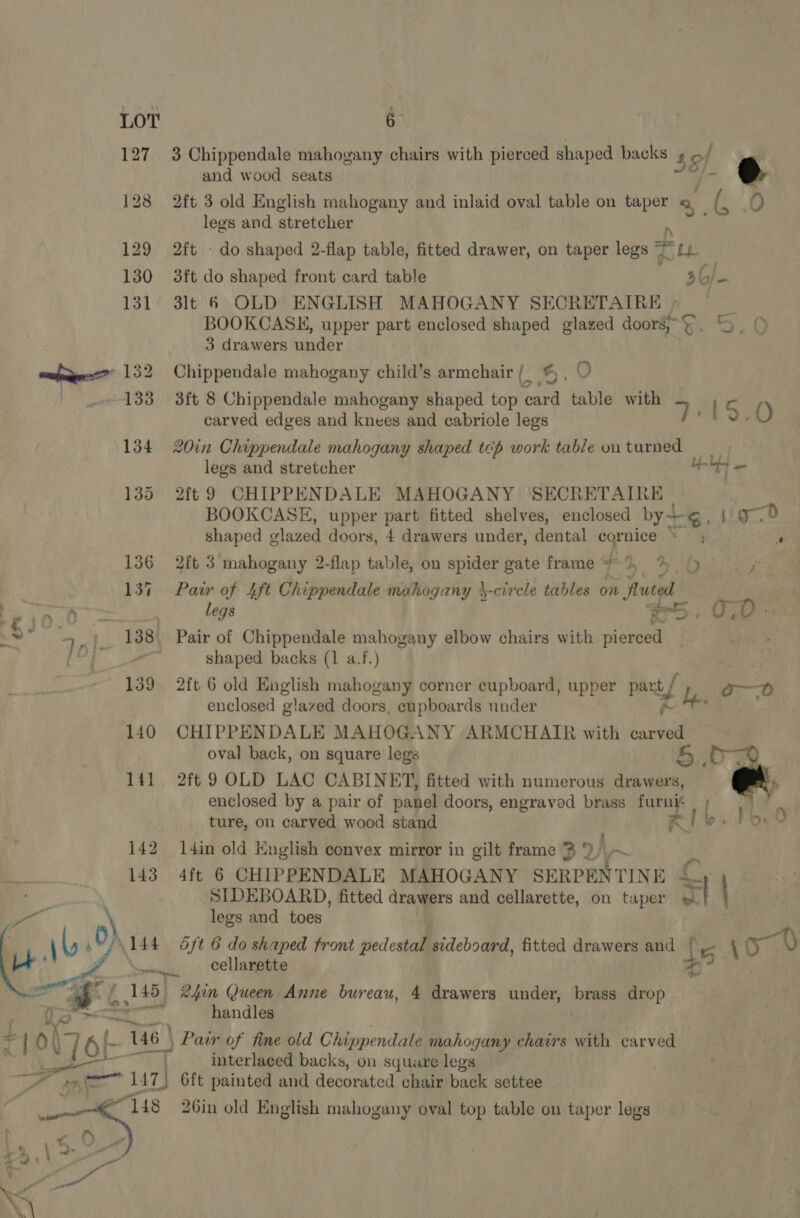 LOT 6
127 3 Chippendale mahogany chairs with pierced shaped backs
and wood seats
128 2ft 3 old English mahogany and inlaid oval table on taper
legs and stretcher
129 2ft - do shaped 2-flap table, fitted drawer, on taper legs
130 3ft do shaped front card table 36/-
131 3ft 6 OLD ENGLISH MAHOGANY SECRETAIRE
BOOKCASE, upper part enclosed shaped glazed doors, 5.0
3 drawers under
132 Chippendale mahogany child's armchair
133 3ft 8 Chippendale mahogany shaped top card table with
carved edges and knees and cabriole legs 7.15.0
134 20in Chippendale mahogany shaped top work table on turned
legs and stretcher
135 2ft 9 CHIPPENDALE MAHOGANY SECRETAIRE
BOOKCASE, upper part fitted shelves, enclosed by
shaped glazed doors, 4 drawers under, dental cornice
136 2ft 3 mahogany 2-flap table, on spider gate frame
137 Pair of 4ft Chippendale mahogany ½-circle tables on fluted
legs
138 Pair of Chippendale mahogany elbow chairs with pierced
shaped backs (1 a.f.)
139 2ft 6 old English mahogany corner cupboard, upper part
enclosed glazed doors, cupboards under
140 CHIPPENDALE MAHOGANY ARMCHAIR with carved
oval back, on square legs
141 2ft 9 OLD LAC CABINET, fitted with numerous drawers,
enclosed by a pair of panel doors, engraved brass furni-
ture, on carved wood stand
142 14in old English convex mirror in gilt frame
143 4ft 6 CHIPPENDALE MAHOGANY SERPENTINE
SIDEBOARD, fitted drawers and cellarette, on taper
legs and toes
144 5ft 6 do shaped front pedestal sideboard, fitted drawers and
cellarette
145 24in Queen Anne bureau, 4 drawers under, brass drop
handles
146 Pair of fine old Chippendale mahogany chairs with carved
interlaced backs, on square legs
147 6ft painted and decorated chair back settee
148 26in old English mahogany oval top table on taper legs